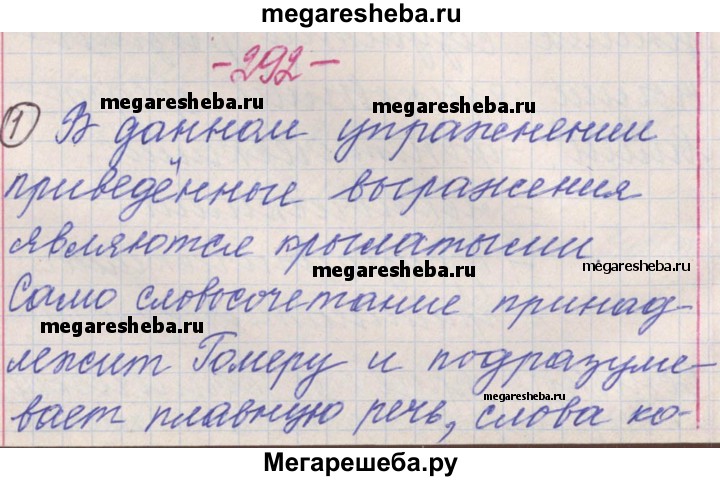 megaresheba.ru
-292-
megaresheba.ru megaresheba.ru
1 В данном упражнении
приведённые выражения
являются крылатыми
megaresheba.ru megaresheba.ru
Само словосочетание принад-
megaresheba.ru
лежит Гомеру и подразуме-
megaresheba.ru
вает плавную речь, слова ко-
Мегарешеба.ру